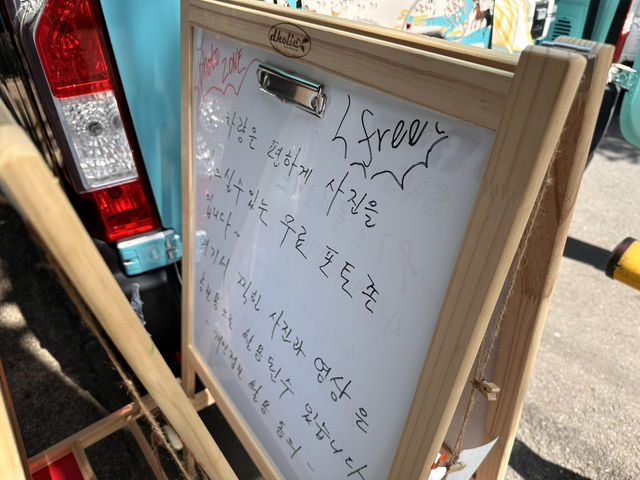 dholic
Photo ZONE
free
차량은 편하게 사진을
찍으실수있는 무료 포토존
입니다~
여기서 찍힌 사진과 영상은
홍보용으로 활용될수 있습니다
- 개인정보 활용 동의 -